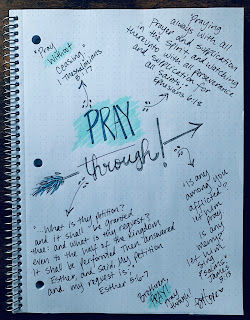 "Pray
Without
Ceasing"
1 Thessalonians
5:17
Praying
always with all
Prayer and supplication
in the Spirit, and watching
thereunto with all perseverance
and supplication for
all saints;"
Ephesians 6:18
PRAY
through!
"Is any
among you
afflicted?
let him
pray. Is
any merry?
let him
sing
psalms."
James
5:13
"...What is thy petition?
and it shall be granted
thee: and what is thy request?
even to the half of the kingdom
it shall be performed. Then answered
Esther, and said, My petition
and my request is;
Esther 5:6-7
PRAY